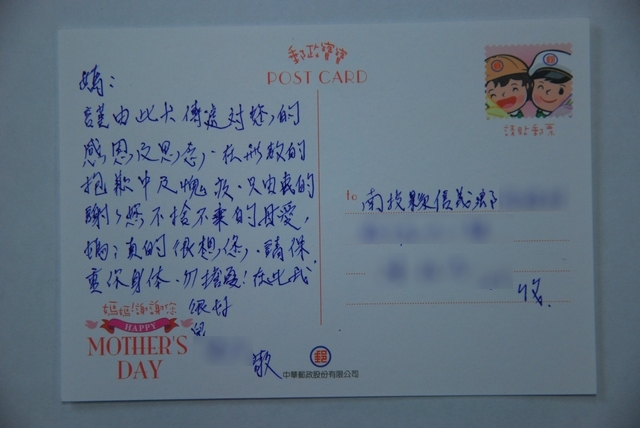 郵政寶寶
POST CARD
請貼郵票
媽:
謹由此卡傳遞對您的
感恩及思念,在形敘的
抱歉中及愧疚,只由衷的
謝謝您不捨不棄的母愛,
媽:真的很想您,請保
重你身体,勿擔憂!在此我
很好
to 南投縣信義鄉
收
媽媽!謝謝您
HAPPY
MOTHER'S
DAY
敬
中華郵政股份有限公司